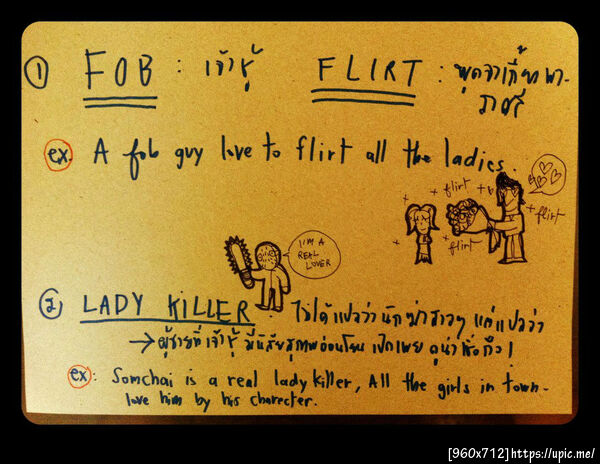 ① FOB : เจ้าชู้ FLIRT : พูดจาเกี้ยวพา-
ราสี
ex. A fob guy love to flirt all the ladies.
+ flirt + ๗
+ flirt
flirt
I'M A
REAL
LOVER
② LADY KILLER : ไม่ได้แปลว่านักฆ่าสาวๆ แต่แปลว่า
→ ผู้ชายที่เจ้าชู้ มีนิสัยสุภาพอ่อนโยน เปิดเผย ดูน่าหลงไหล
ex : Somchai is a real lady killer, All the girls in town
love him by his charecter.
[960x712] https://upic.me/